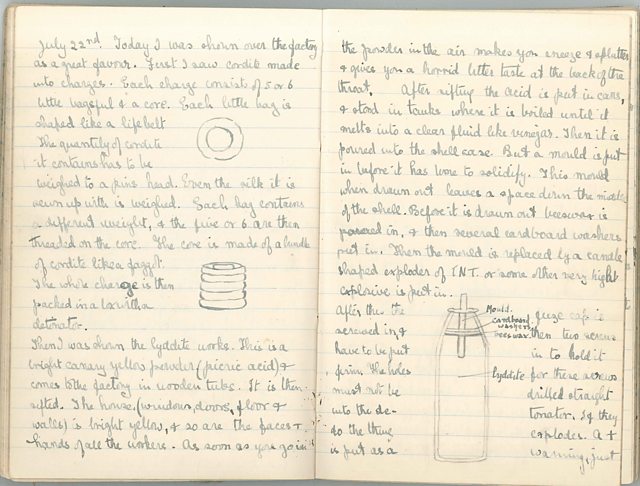 July 22nd. Today I was shown over the factory
as a great favour. First I saw cordite made
into charges. Each charge consists of 5 or 6
little bagsful & a core. Each little bag is
shaped like a lifebelt
The quantity of cordite
it contains has to be
weighed to a pins head. Even the silk it is
sewn up with is weighed. Each bag contains
a different weight, & the five or 6 are then
threaded on the core. The core is made of a bundle
of cordite like a faggot.
The whole charge is then
packed in a box with a
detonator.
Then I was shown the lyddite works. This is a
bright canary yellow powder (picric acid) &
comes to the factory in wooden tubs. It is then
sifted. The house, (windows, doors, floor &
walls) is bright yellow, & so are the faces &
hands of all the workers. As soon as you go in
the powder in the air makes you sneeze & splutter
& gives you a horrid bitter taste at the back of the
throat. After sifting the acid is put in cans,
& stood in tanks where it is boiled until it
melts into a clear fluid like vinegar. Then it is
poured into the shell case. But a mould is put
in before it has time to solidify. This mould
when drawn out leaves a space down the middle
of the shell. Before it is drawn out beeswax is
poured in, & then several cardboard washers
put in. Then the mould is replaced by a candle
shaped exploder of T.N.T. or some other very high
explosive is put in.
After this the fuze cap is
screwed in & then two screws
have to be put in to hold it
firm. The holes for these screws
must not be drilled straight
into the de- tonator. If they
do the thing explodes. A +
is put as a warning, just
Mould.
cardboard
washers
beeswax.
lyddite